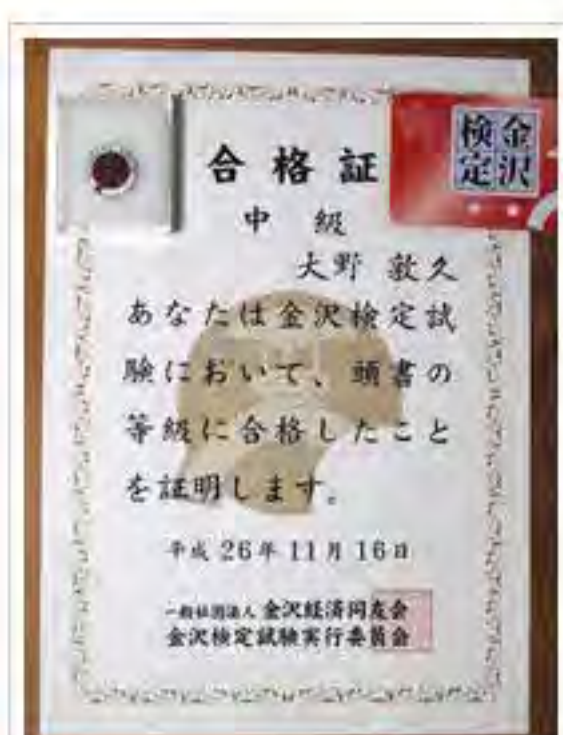 合格証
金沢
検定
中級
大野 敏久
あなたは金沢検定試
験において、頭書の
等級に合格したこと
を証明します。
平成26年11月16日
一般社団法人 金沢経済同友会
金沢検定試験実行委員会